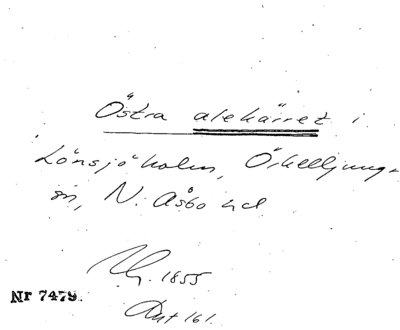 Östra alekärret i
Lönsjöholm, Örkelljunga
sn, N. Åsbo hd
Ug. 1855
Nr 7479.
Akt 161.